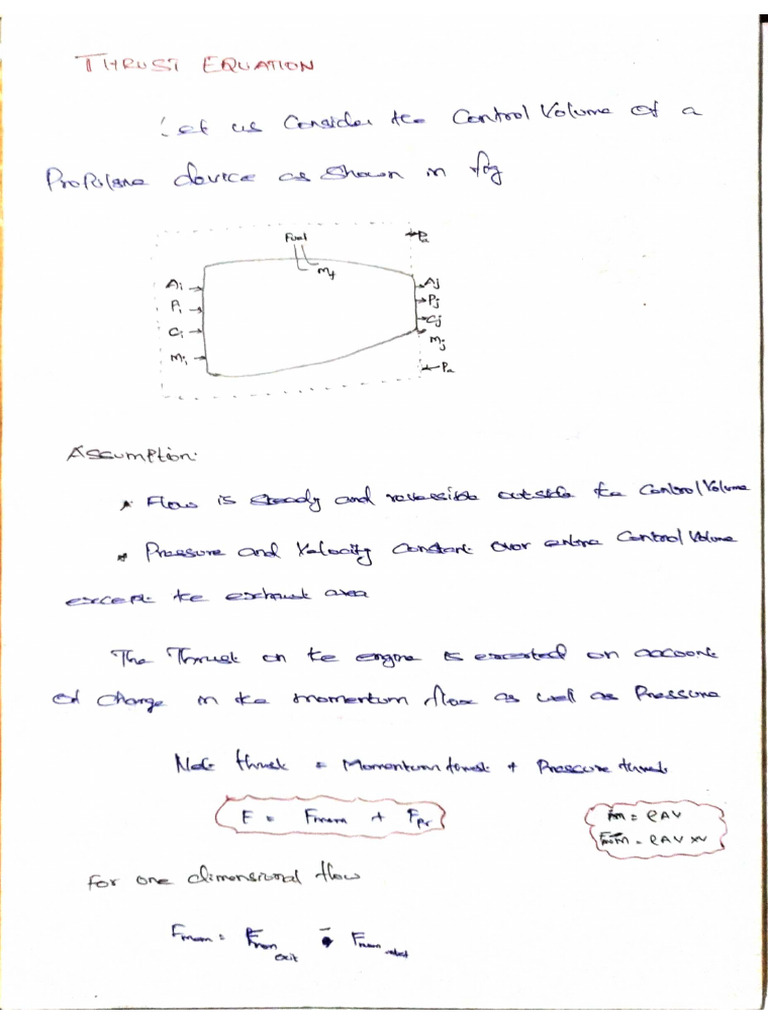 THRUST EQUATION
Let us Consider the Control Volume of a
Propilsne device as shown in fig
Fuel
Pa
mf
Ai
Aj
Pi
Pj
Ci
Cj
mi
mj
Pa
Assumption:
* Flow is steady and reversible outside the Control Volume
* Pressure and Velocity constant over entire Control Volume
except the exhaust area
The Thrust on the engine is exerted on account
of change in the momentum flux as well as Pressure
Net thrust = Momentum thrust + Pressure thrust
F = Fmom + Fpr
ṁ = ρAV
Fmom = ρAV×V
For one dimensional flow
Fmom = Fmom exit - Fmom inlet